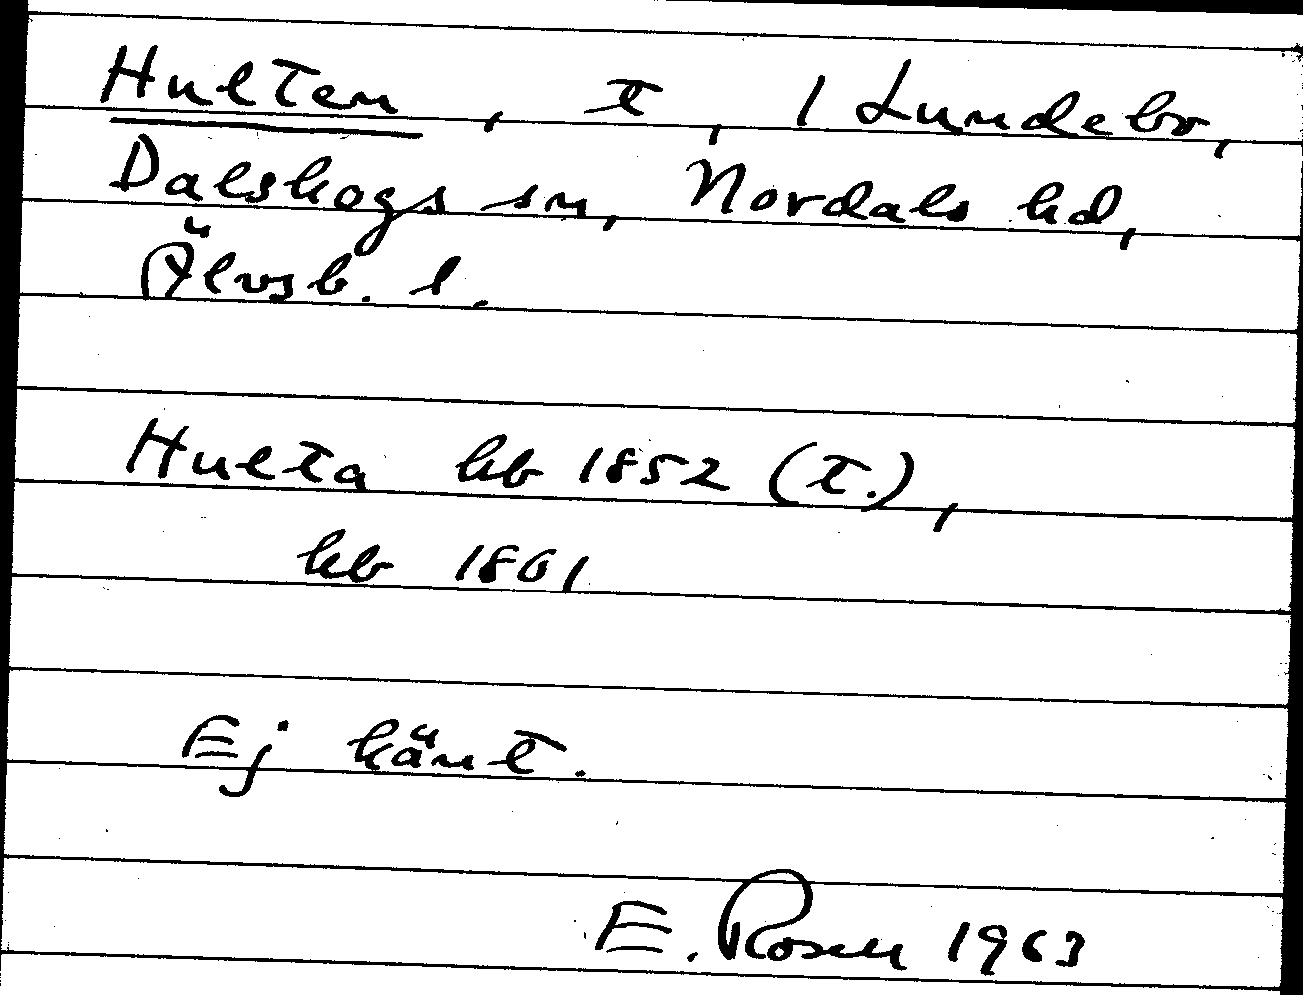 Hulten, t, 1 Lundebo,
Dalskogs sn, Nordals hd,
Älvsb. l.
Hulta hb 1852 (t.),
hb 1861
Ej känt.
E. Rosen 1963